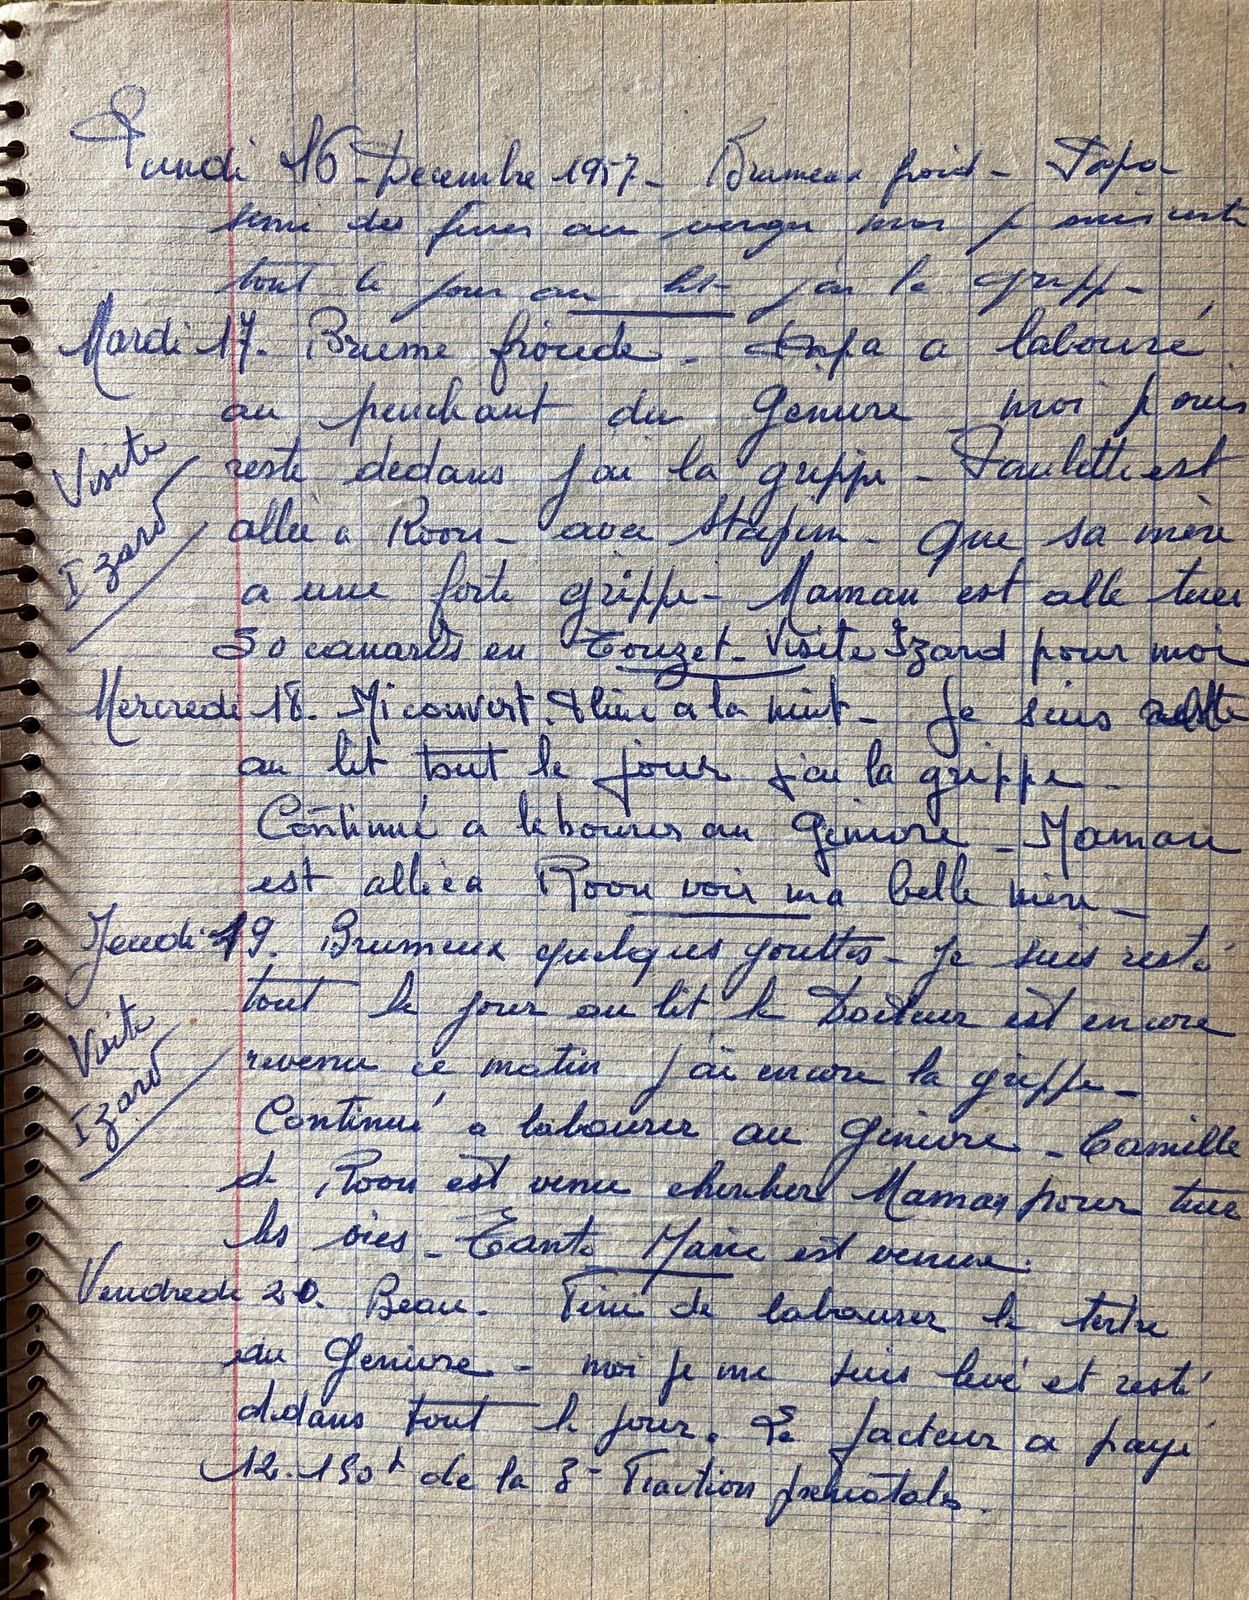 Lundi 16 Decembre 1957 - Brumeux froid - Papa
semé des feves au verger moi je suis resté
tout le jour au lit - j'ai la grippe -
Mardi 17. Brume froide - Papa a labouré
au penchant du Genievre moi je suis
Visite
resté dedans j'ai la grippe - Paulette est
allée a Roou - avec Stapin - Que sa mère
Izard
a une forte grippe - Maman est allé tuer
30 canards en Touzet - Visite Izard pour moi
Mercredi 18. Mi couvert. Pluie a la nuit - Je suis resté
au lit tout le jour j'ai la grippe -
Continué a labourer au Genievre - Maman
est allée a Roou voir ma belle mère -
Jeudi 19. Brumeux quelques gouttes - je suis resté
tout le jour au lit le Docteur est encore
Visite
revenu ce matin j'ai encore la grippe -
Izard
Continué a labourer au Genievre - Camille
de Roou est venu chercher Maman pour tuer
les oies - Tante Marie est venue.
Vendredi 20. Beau - Fini de labourer le tertre
du Genievre - moi je me suis levé et resté
dedans tout le jour. Le facteur a payé
12.150f de la 3e Fraction prénatale.